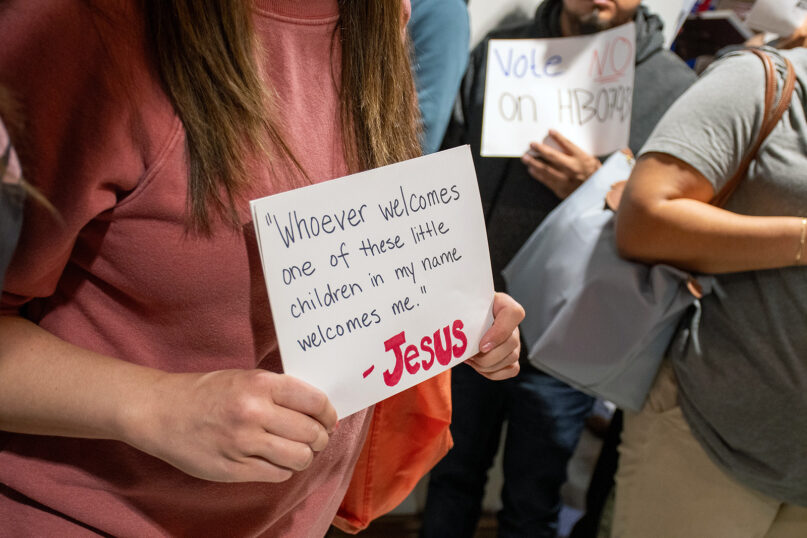 "Whoever welcomes
one of these little
children in my name
welcomes me."
- Jesus
Vote NO
on HB0793